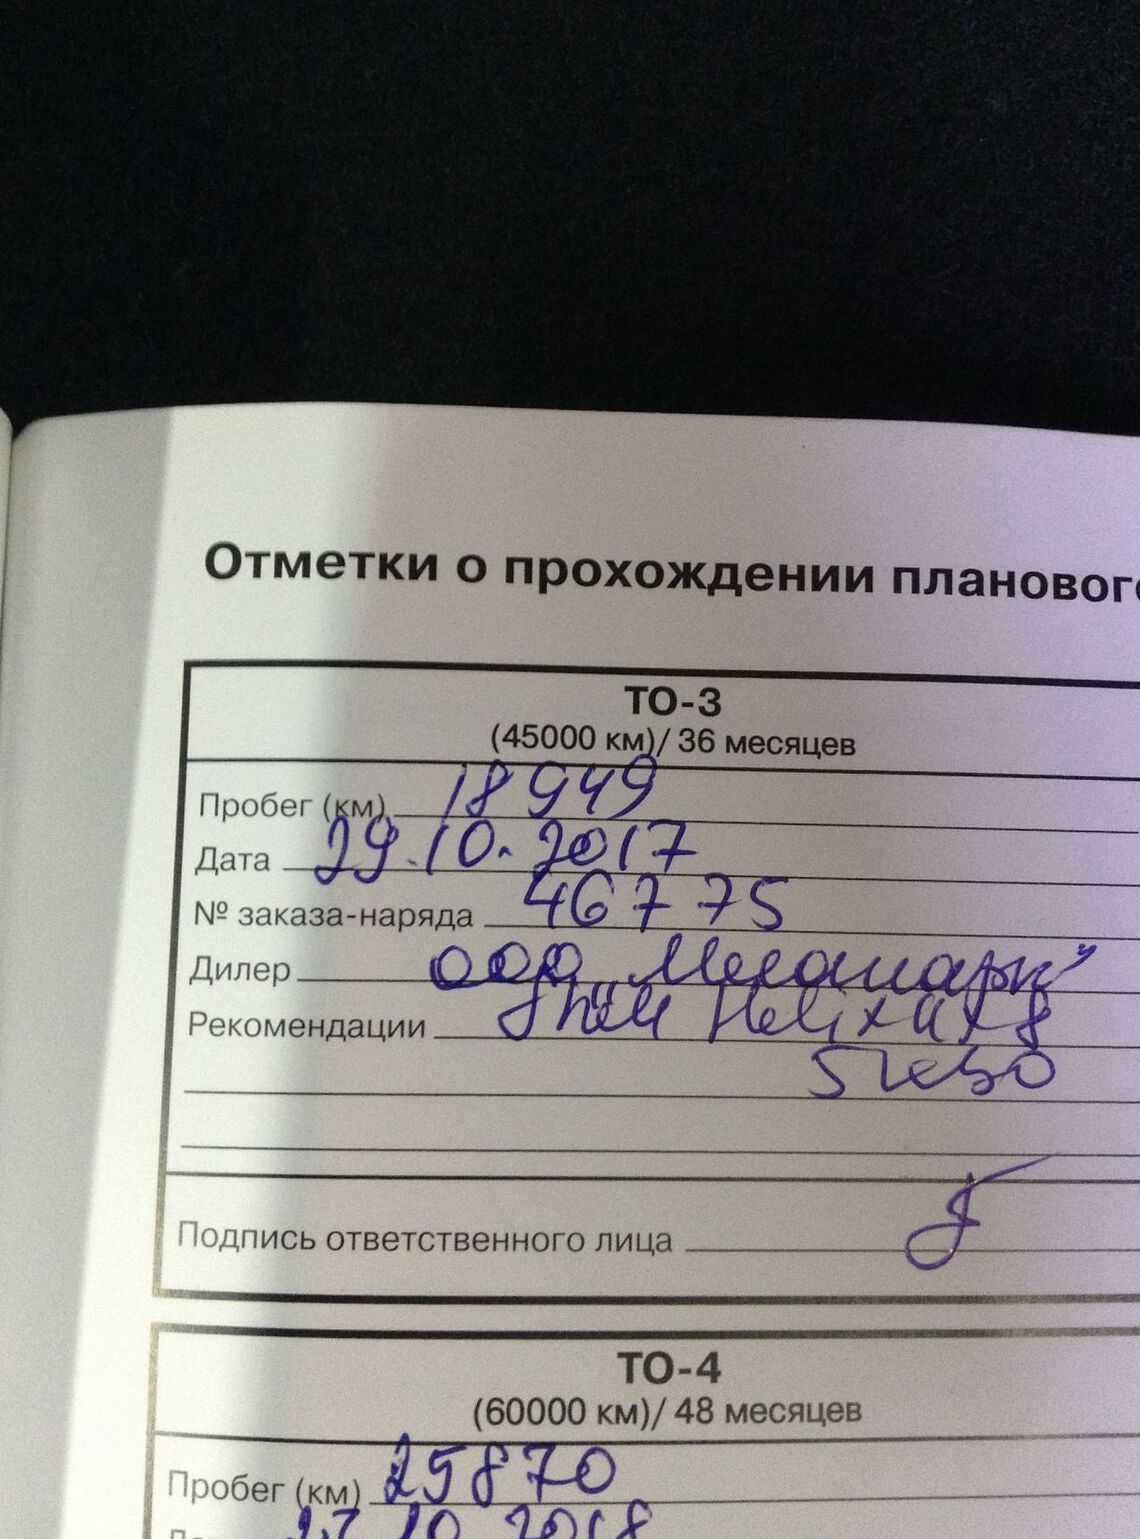 Отметки о прохождении планового
ТО-3
(45000 км)/ 36 месяцев
Пробег (км) 18949
Дата 29.10.2017
№ заказа-наряда 46775
Дилер ООО
Рекомендации Helix
5w30
Подпись ответственного лица
ТО-4
(60000 км)/ 48 месяцев
Пробег (км) 25870
10 2018